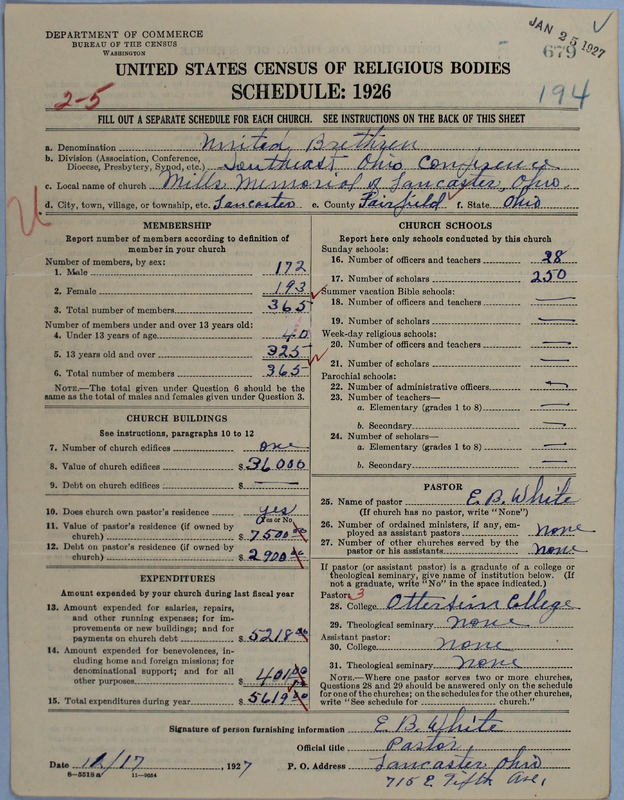 DEPARTMENT OF COMMERCE
BUREAU OF THE CENSUS
WASHINGTON
JAN 25 1927
679
UNITED STATES CENSUS OF RELIGIOUS BODIES
SCHEDULE: 1926
2-5
194
FILL OUT A SEPARATE SCHEDULE FOR EACH CHURCH. SEE INSTRUCTIONS ON THE BACK OF THIS SHEET
a. Denomination United Brethren
b. Division (Association, Conference, Diocese, Presbytery, Synod, etc.) Southeast Ohio Conference
c. Local name of church Mills Memorial of Lancaster, Ohio.
d. City, town, village, or township, etc. Lancaster e. County Fairfield f. State Ohio
MEMBERSHIP
Report number of members according to definition of
member in your church
Number of members, by sex:
1. Male 172
2. Female 193
3. Total number of members 365
Number of members under and over 13 years old:
4. Under 13 years of age 40
5. 13 years old and over 325
6. Total number of members 365
NOTE.—The total given under Question 6 should be
same as the total of males and females given under Question 3.
CHURCH BUILDINGS
See instructions, paragraphs 10 to 12
7. Number of church edifices one
8. Value of church edifices $ 36000
9. Debt on church edifices $ —
10. Does church own pastor's residence yes
(Yes or No)
11. Value of pastor's residence (if owned by
church) $ 7500 00
12. Debt on pastor's residence (if owned by
church) $ 2900 00
EXPENDITURES
Amount expended by your church during last fiscal year
13. Amount expended for salaries, repairs,
and other running expenses; for im-
provements or new buildings; and for
payments on church debt $ 5218 00
14. Amount expended for benevolences, in-
cluding home and foreign missions; for
denominational support; and for all
other purposes $ 401 00
15. Total expenditures during year $ 5619 00
CHURCH SCHOOLS
Report here only schools conducted by this church
Sunday schools:
16. Number of officers and teachers 28
17. Number of scholars 250
Summer vacation Bible schools:
18. Number of officers and teachers —
19. Number of scholars —
Week-day religious schools:
20. Number of officers and teachers —
21. Number of scholars —
Parochial schools:
22. Number of administrative officers —
23. Number of teachers—
a. Elementary (grades 1 to 8) —
b. Secondary —
24. Number of scholars—
a. Elementary (grades 1 to 8) —
b. Secondary —
PASTOR
25. Name of pastor E. B. White
(If church has no pastor, write "None")
26. Number of ordained ministers, if any, em-
ployed as assistant pastors none
27. Number of other churches served by the
pastor or his assistants none
If pastor (or assistant pastor) is a graduate of a college or
theological seminary, give name of institution below. (If
not a graduate, write "No" in the space indicated.)
Pastor: 3
28. College Otterbein College
29. Theological seminary none
Assistant pastor:
30. College none
31. Theological seminary none
NOTE.—Where one pastor serves two or more churches,
Questions 28 and 29 should be answered only on the schedule
for one of the churches; on the schedules for the other churches,
write "See schedule for church."
Signature of person furnishing information E. B. White
Official title Pastor,
Date 12/17, 1927 P. O. Address Lancaster Ohio
715 E. Fifth Ave,
8-5518a 11-9054